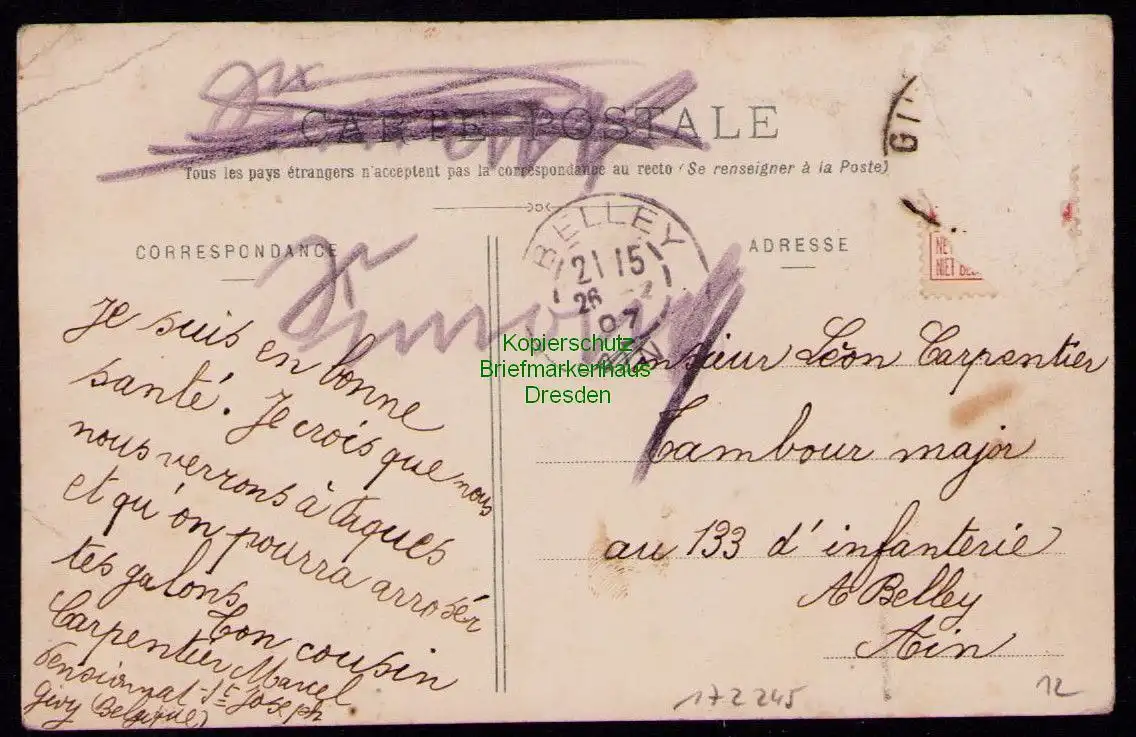 CARTE POSTALE
Tous les pays étrangers n'acceptent pas la correspondance au recto (Se renseigner à la Poste)
CORRESPONDANCE
ADRESSE
GI
BELLEY
21 15
26 -2
07
AIN
NE
NIET
Je suis en bonne
santé. Je crois que nous
nous verrons à Pâques
et qu'on pourra arroser
tes galons
Ton cousin
Carpentier Marcel
Pensionnat St Joseph
Givry (Belgique)
Monsieur Léon Carpentier
Tambour major
au 133 d'infanterie
A Belley
Ain
172245
12
Kopierschutz
Briefmarkenhaus
Dresden